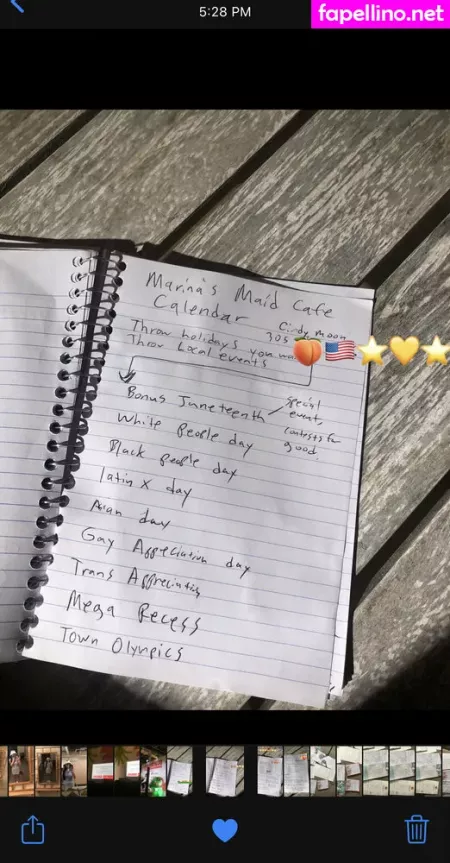 5:28 PM
fapellino.net
Marina's Maid Cafe
Calendar
Cindy Moon
305
Throw holidays you
Throw Local events
Bonus Juneteenth
special
event,
contests for
good.
White People day
Black people day
latin x day
Asian day
Gay Appreciation day
Trans Appreciation
Mega Recess
Town Olympics